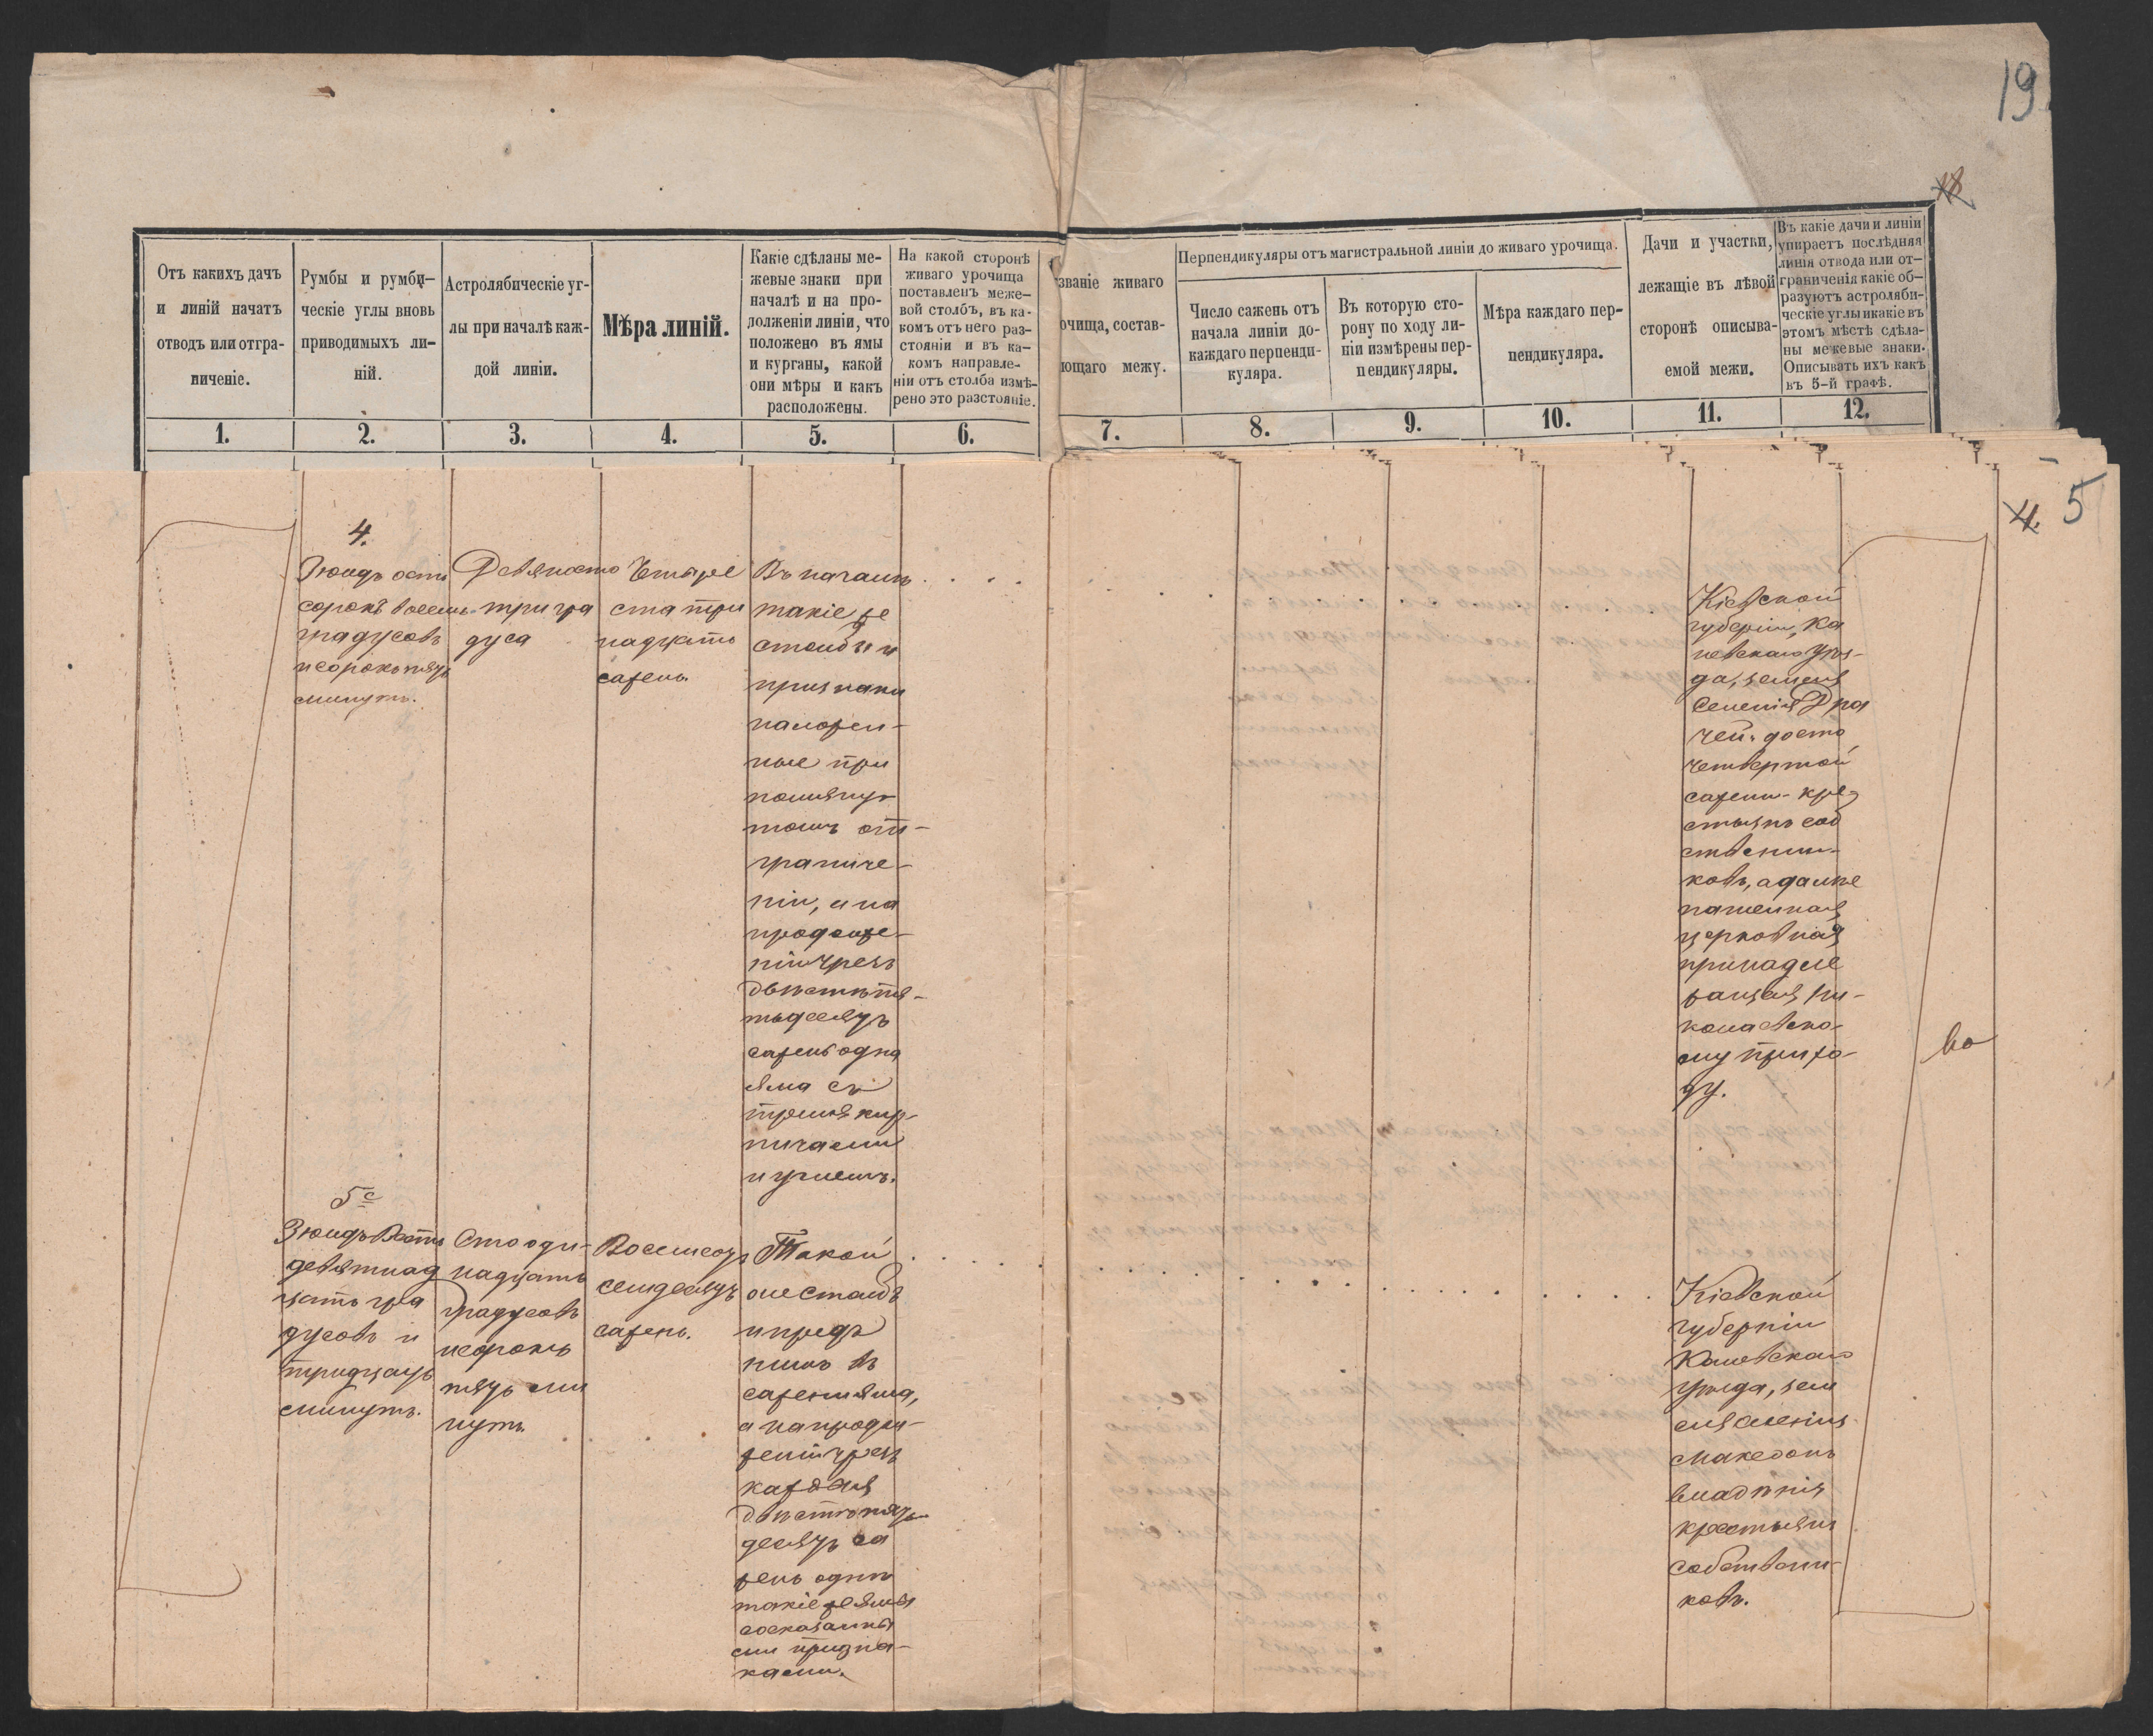 19.
18
Отъ какихъ дачъ
и линій начатъ
отводъ или отгра-
ниченіе.
Румбы и румби-
ческіе углы вновь
приводимыхъ ли-
ній.
Астролябическіе уг-
лы при началѣ каж-
дой линіи.
Мѣра линій.
Какіе сдѣланы ме-
жевые знаки при
началѣ и на про-
долженіи линіи, что
положено въ ямы
и курганы, какой
они мѣры и какъ
расположены.
На какой сторонѣ
живаго урочища
поставленъ меже-
вой столбъ, въ ка-
комъ отъ него раз-
стояніи и въ ка-
комъ направле-
ніи отъ столба измѣ-
рено это разстояніе.
званіе живаго
очища, состав-
ющаго межу.
Перпендикуляры отъ магистральной линіи до живаго урочища.
Число сажень отъ
начала линіи до
каждаго перпенди-
куляра.
Въ которую сто-
рону по ходу ли-
ніи измѣрены пер-
пендикуляры.
Мѣра каждаго пер-
пендикуляра.
Дачи и участки,
лежащіе въ лѣвой
сторонѣ описыва-
емой межи.
Въ какіе дачи и линіи
упираетъ послѣдняя
линія отвода или от-
граниченія какіе об-
разуютъ астроляби-
ческіе углы и какіе въ
этомъ мѣстѣ сдѣла-
ны межевые знаки.
Описывать ихъ какъ
въ 5-й графѣ.
1.
2.
3.
4.
5.
6.
7.
8.
9.
10.
11.
12.
4. 5
4.
Зюидъ остъ
сорокъ восемь
градусовъ
и сорокъ пять
минутъ.
Девяносто
три гра
дуса
Четыре
ста три
надцать
сажень.
Въ началѣ
такіе же
столбъ и
признаки
положен-
ные при
помяну
томъ от-
граниче-
ніи, а на
продолже-
ніи чрезъ
двѣсти пя-
тьдесятъ
сажень одна
яма съ
тремя кир-
пичами
и углемъ.
Кіевской
губерніи, Ка
невскаго уѣз-
да, земля
селенія Дра
чей: до сто
четвертой
сажени - кре-
стьянъ соб
ственни-
ковъ, а далѣе
пашенная
церковная
принадле
жащая Ни-
колаевско-
му прихо-
ду.
во
5е
Зюидъ Вестъ
девятнад
цать гра
дусовъ и
тридцать
минутъ.
Сто оди-
надцать
градусовъ
и сорокъ
пять ми
нутъ.
Восемсотъ
семдесятъ
сажень.
Такой
же столбъ
и предъ
нимъ въ
сажени яма,
а на продол-
женіи чрезъ
каждыя
двѣсти пять
десятъ са
жень одни
такіе же ямы
со сказанны
ми призна-
ками.
Кіевской
губерніи
Каневскаго
уѣзда, зем
ля селенія
Македонъ
владѣнія
крестьянъ
собственни-
ковъ.